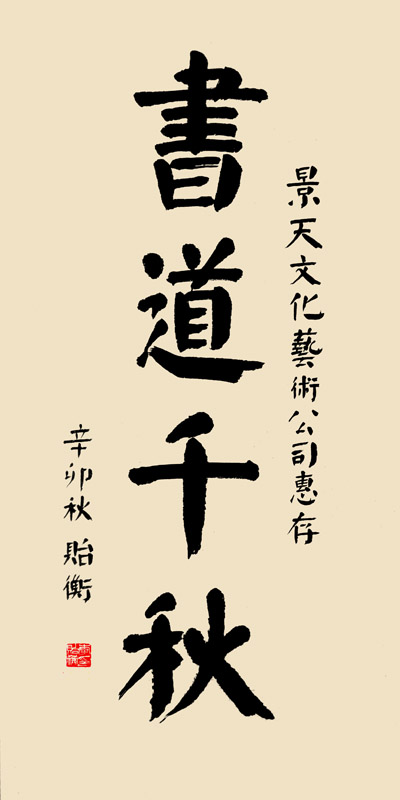 景天文化藝術公司惠存
書道千秋
辛卯秋 貽衡